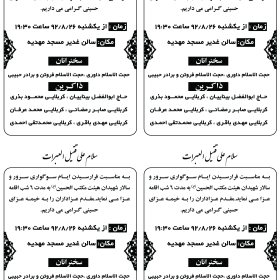 حسینی گرامی می داریم.
حسینی گرامی می داریم.
زمان: از یکشنبه ۹۲/۸/۲۶ ساعت ۱۹:۳۰
زمان: از یکشنبه ۹۲/۸/۲۶ ساعت ۱۹:۳۰
مکان: سالن غدیر مسجد مهدیه
مکان: سالن غدیر مسجد مهدیه
سخنرانان
سخنرانان
حجت الاسلام داوری ،حجت الاسلام فروتن و برادر حبیبی
حجت الاسلام داوری ،حجت الاسلام فروتن و برادر حبیبی
ذاکرین
ذاکرین
حاج ابوالفضل بیناییان ، کربلایی محمود بذری
حاج ابوالفضل بیناییان ، کربلایی محمود بذری
کربلایی صابر رمضانی، کربلایی محمد عرفان
کربلایی صابر رمضانی، کربلایی محمد عرفان
کربلایی مهدی باقری ، کربلایی محمدتقی احمدی
کربلایی مهدی باقری ، کربلایی محمدتقی احمدی
سلام علی قتیل العبرات
سلام علی قتیل العبرات
به مناسبت فرارسیدن ایام سوگواری سرور و
به مناسبت فرارسیدن ایام سوگواری سرور و
سالار شهیدان هیئت مکتب الحسین به مدت ۹ شب اقامه
سالار شهیدان هیئت مکتب الحسین به مدت ۹ شب اقامه
عزا می نماید.مقدم عزاداران را به خیمه عزای
عزا می نماید.مقدم عزاداران را به خیمه عزای
حسینی گرامی می داریم.
حسینی گرامی می داریم.
زمان: از یکشنبه ۹۲/۸/۲۶ ساعت ۱۹:۳۰
زمان: از یکشنبه ۹۲/۸/۲۶ ساعت ۱۹:۳۰
مکان: سالن غدیر مسجد مهدیه
مکان: سالن غدیر مسجد مهدیه
سخنرانان
سخنرانان
حجت الاسلام داوری ،حجت الاسلام فروتن و برادر حبیبی
حجت الاسلام داوری ،حجت الاسلام فروتن و برادر حبیبی